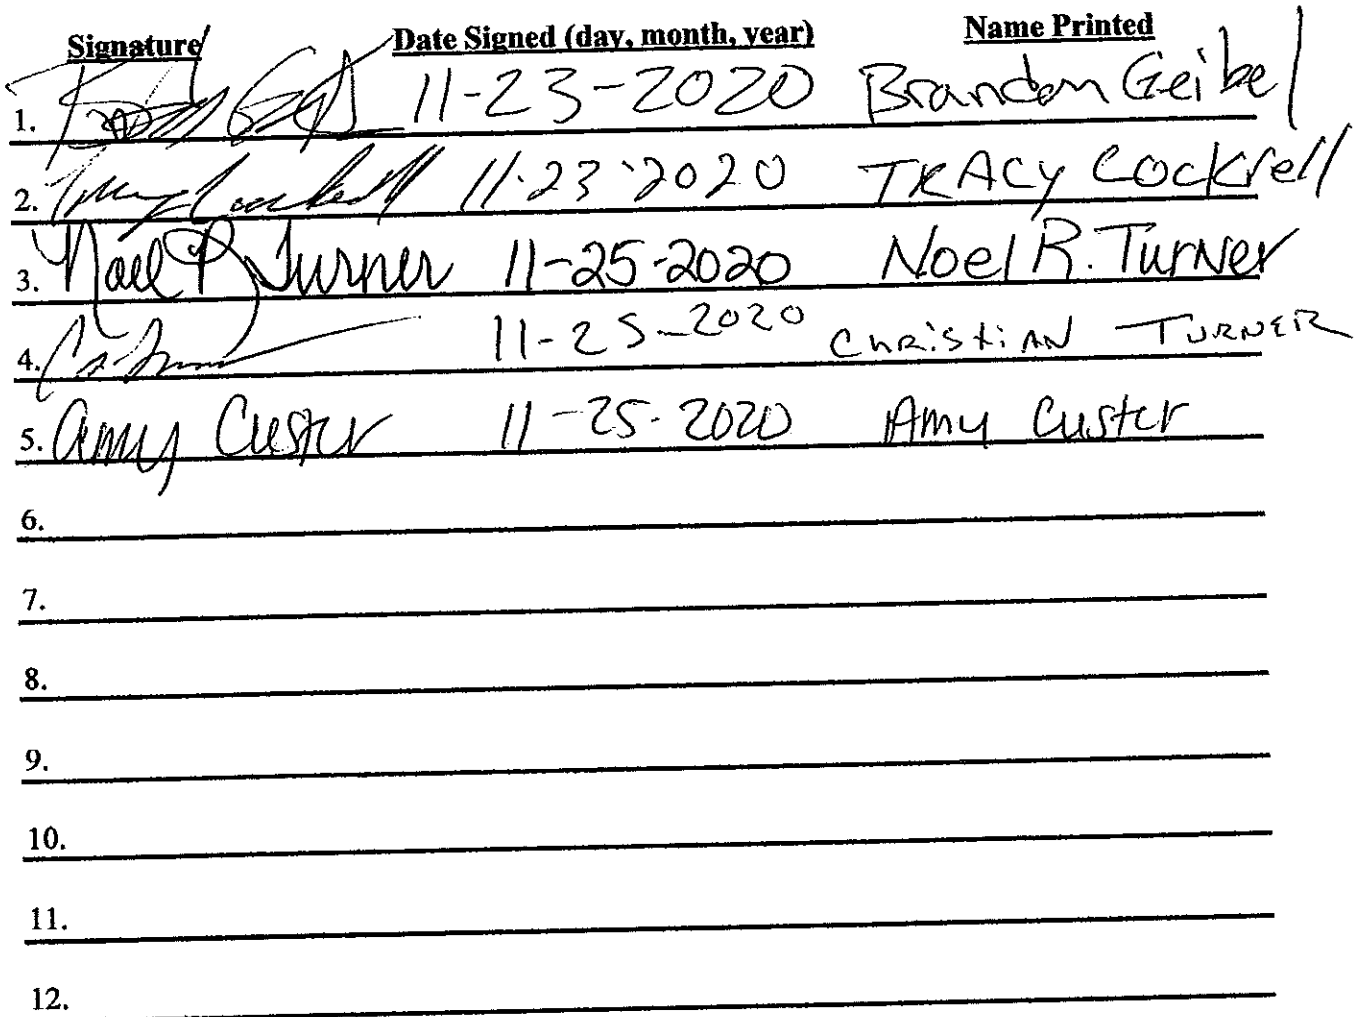 Signature Date Signed (day, month, year) Name Printed
1. 11-23-2020 Brandon Geibel
2. Tracy Cockrell 11-23-2020 TRACy Cockrell
3. Noel R Turner 11-25-2020 Noel R. Turner
4. 11-25-2020 CHRistiAN TURNER
5. Amy Custer 11-25-2020 Amy Custer
6.
7.
8.
9.
10.
11.
12.